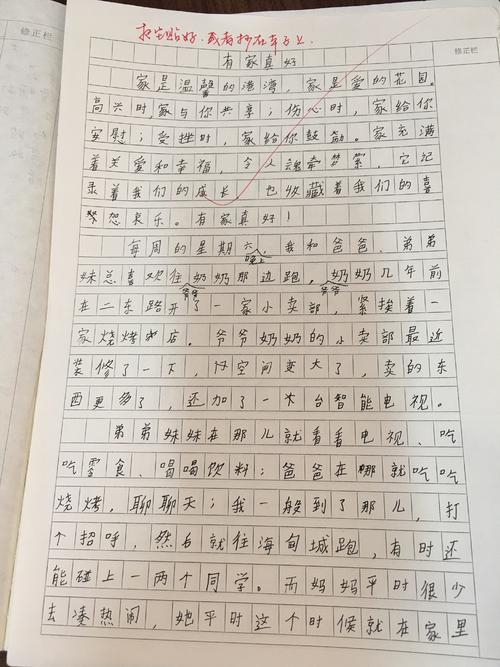 修正栏
把它贴好，或者抄在本子上。
有家真好
家是温馨的港湾，家是爱的花园。
高兴时，家与你共享；伤心时，家给你
安慰；受挫时，家给你鼓励。家充满
着关爱和幸福，令人魂牵梦萦，它记
录着我们的成长，也收藏着我们的喜
怒哀乐。有家真好！
每周的星期六晚上，我和爸爸、弟弟
妹总喜欢往爷爷奶奶那边跑，爷爷奶奶几年前
在二东路开了一家小卖部，紧挨着一
家烧烤店。爷爷奶奶的小卖部最近
装修了一下，空间变大了，卖的东
西更多了，还加了一大台智能电视。
弟弟妹妹在那儿就看看电视、吃
吃零食、喝喝饮料；爸爸在哪就吃吃
烧烤，聊聊天；我一般到了那儿，打
个招呼，然后就往海甸城跑，有时还
能碰上一两个同学。而妈妈平时很少
去凑热闹，她平时这个时候就在家里
修正栏